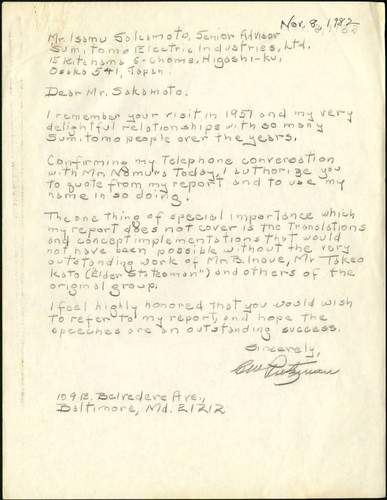 Nov. 8, 1982
Mr. Isamu Sakamoto, Senior Advisor
Sumitomo Electric Industries, Ltd.
15 Kitahama 5-Chome, Higashi-ku,
Osaka 541, Japan.
Dear Mr. Sakamoto.
I remember your visit in 1951 and my very
delightful relationships with so many
Sumitomo people over the years.
Confirming my Telephone conversation
with Mr. Nomura Today, I authorize you
to quote from my report and to use my
name in so doing.
The one thing of special importance which
my report does not cover is the Translations
and concept implementations that would
not have been possible without the very
outstanding work of Mr. B. Inoue, Mr Takeo
Kato (Elder Statesman") and others of the
original group.
I feel highly honored that you would wish
to refer to my report, and hope the
speeches are an outstanding success.
Sincerely,
109 E. Belvedere Ave.,
Baltimore, Md. 21212